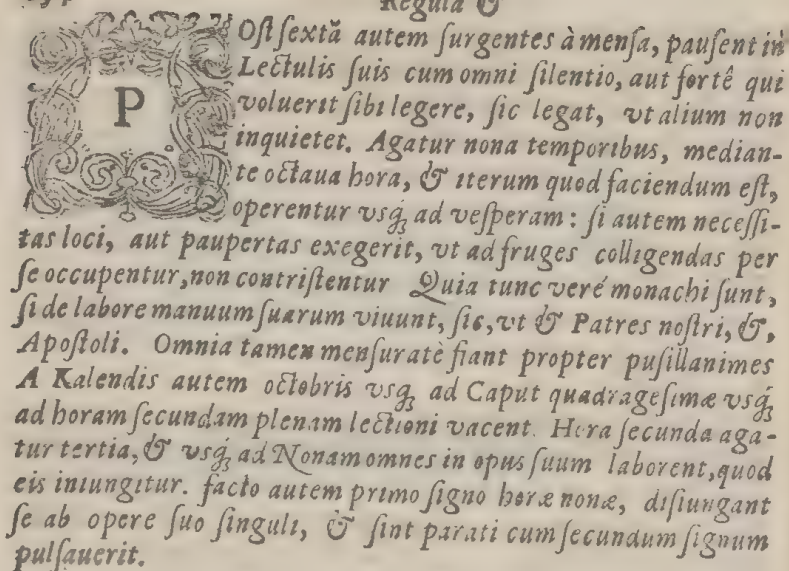 Regula &
POſt ſextã autem ſurgentes à menſa, pauſent in
Lectulis ſuis cum omni ſilentio, aut fortê qui
voluerit ſibi legere, ſic legat, vt alium non
inquietet. Agatur nona temporibus, median-
te octaua hora, & iterum quod faciendum eſt,
operentur vsq́; ad veſperam: ſi autem neceſſi-
tas loci, aut paupertas exegerit, vt ad fruges colligendas per
ſe occupentur, non contriſtentur Quia tunc veré monachi ſunt,
ſi de labore manuum ſuarum viuunt, ſic, vt & Patres noſtri, &,
Apoſtoli. Omnia tamen menſuratè fiant propter puſillanimes
A Kalendis autem octobris vsq́; ad Caput quadrageſimæ vsq́;
ad horam ſecundam plenam lectioni vacent. Hora ſecunda aga-
tur tertia, & vsq́; ad Nonam omnes in opus ſuum laborent, quod
eis iniungitur. facto autem primo ſigno horæ nonæ, diſiungant
ſe ab opere ſuo ſinguli, & ſint parati cum ſecundum ſignum
pulſauerit.